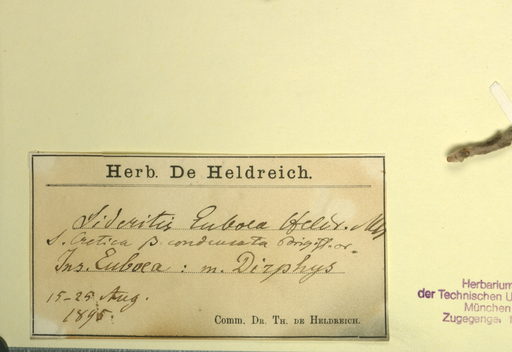 Herb. De Heldreich.
Sideritis Euboea Heldr.
S. Cretica β condensata
Ins. Euboea: m. Dirphys
15-25 Aug.
1895.
Comm. Dr. Th. de Heldreich.
Herbarium
der Technischen U
München
Zugegange